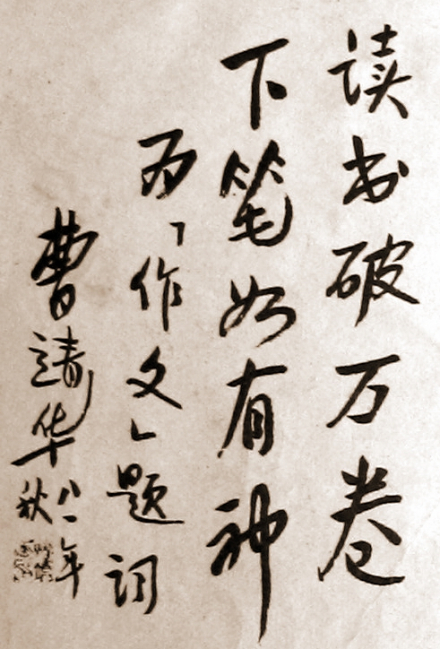 读书破万卷
下笔如有神
为「作文」题词
曹靖华
八一年
秋